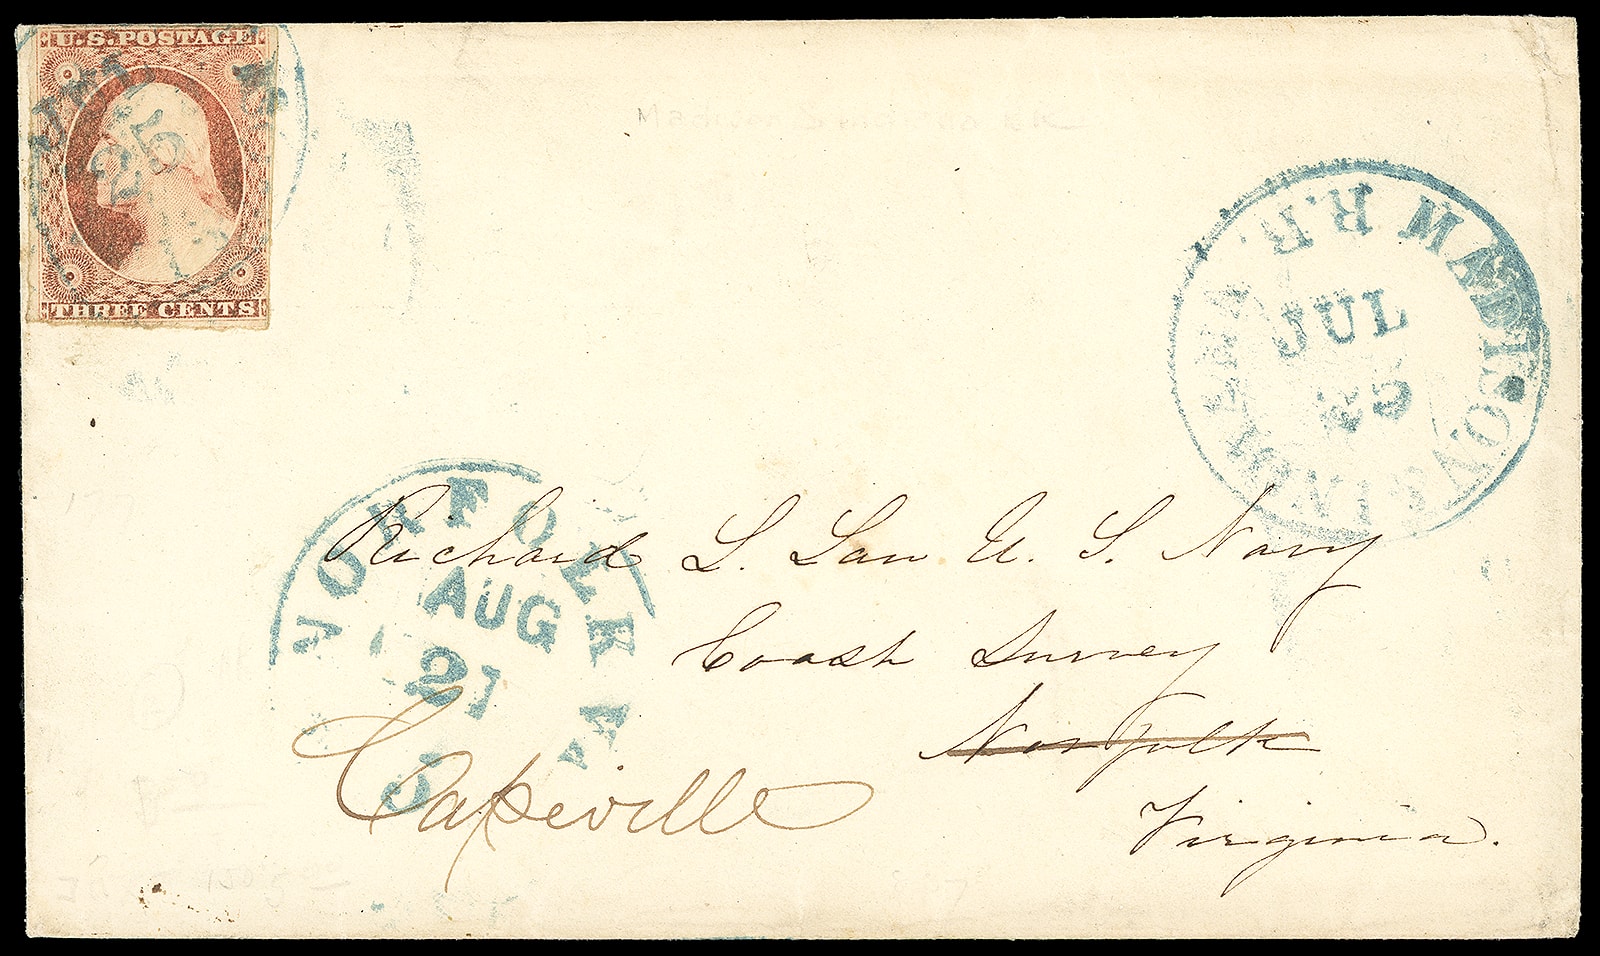 U.S. POSTAGE
THREE CENTS
25
MADISON & INDIANA. R.R.
JUL
25
NORFOLK Va.
AUG
2
Richard L. Law U. S. Navy
Coast Survey
Norfolk
Virginia.
Capeville